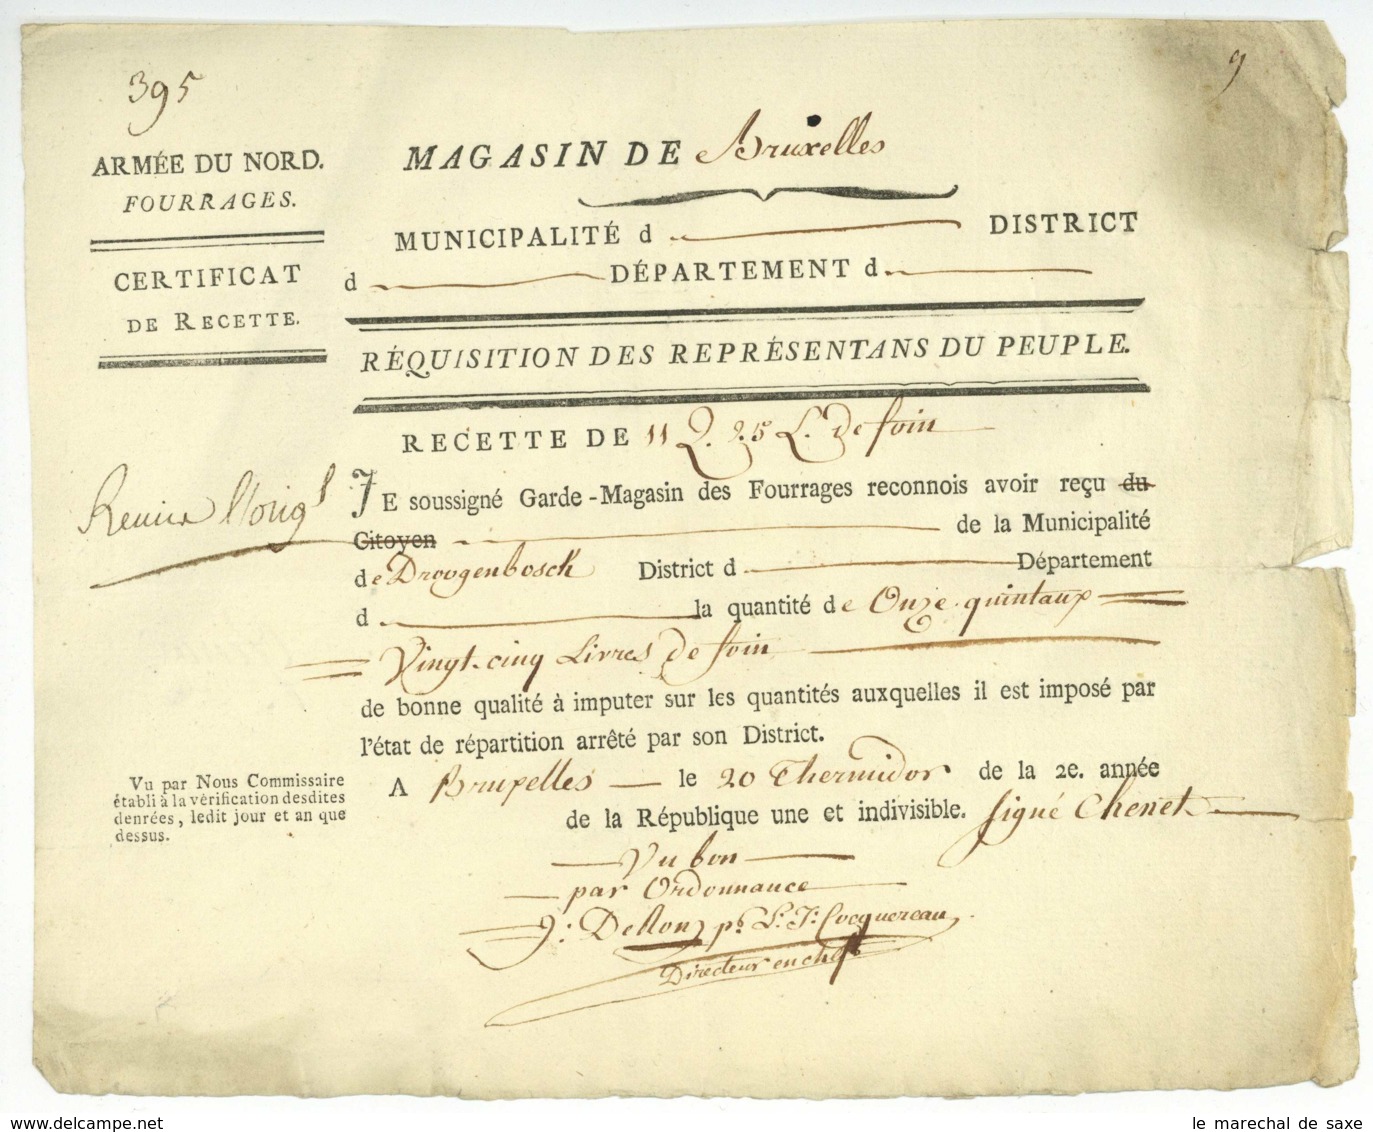 395
9
ARMÉE DU NORD.
FOURRAGES.
CERTIFICAT
DE RECETTE.
MAGASIN DE Bruxelles
MUNICIPALITÉ d DISTRICT
d DÉPARTEMENT d
RÉQUISITION DES REPRÉSENTANS DU PEUPLE.
RECETTE DE 11 Q. 25 L. de foin
JE soussigné Garde-Magasin des Fourrages reconnois avoir reçu du
Citoyen de la Municipalité
de Droogenbosch District d Département
d la quantité de Onze quintaux
Vingt-cinq Livres de foin
de bonne qualité à imputer sur les quantités auxquelles il est imposé par
l'état de répartition arrêté par son District.
A Bruxelles le 20 Thermidor de la 2e. année
de la République une et indivisible. signé Chenet
Vu par Nous Commissaire
établi à la vérification desdites
denrées, ledit jour et an que
dessus.
Vu bon
par Ordonnance
Cocquereau
Directeur en chef
delcampe.net
le marechal de saxe